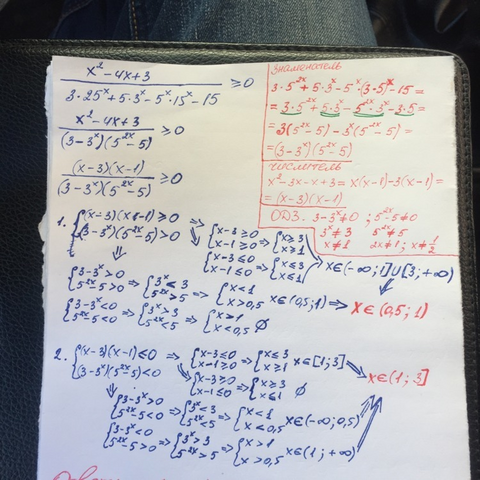 x² - 4x + 3 / 3·25ˣ + 5·3ˣ - 5ˣ·15ˣ - 15 ≥ 0
x² - 4x + 3 / (3 - 3ˣ)(5²ˣ - 5) ≥ 0
(x-3)(x-1) / (3-3ˣ)(5²ˣ-5) ≥ 0
знаменатель
3·5²ˣ + 5·3ˣ - 5ˣ·(3·5)ˣ - 15 =
= 3·5²ˣ + 5·3ˣ - 5²ˣ·3ˣ - 3·5 =
= 3(5²ˣ-5) - 3ˣ(5²ˣ-5) =
= (3-3ˣ)(5²ˣ-5)
числитель
x² - 3x - x + 3 = x(x-1) - 3(x-1) =
= (x-3)(x-1)
ОДЗ. 3-3ˣ ≠ 0 ; 5²ˣ-5 ≠ 0
3ˣ ≠ 3 5²ˣ ≠ 5
x ≠ 1 2x ≠ 1 ; x ≠ 1/2
1. { (x-3)(x-1) ≥ 0 ⇒ { x-3 ≥ 0 ⇒ { x ≥ 3
(3-3ˣ)(5²ˣ-5) > 0 x-1 ≥ 0 x ≥ 1
{ x-3 ≤ 0 ⇒ { x ≤ 3 x∈(-∞;1]∪[3;+∞)
x-1 ≤ 0 x ≤ 1
{ 3-3ˣ > 0 ⇒ { 3ˣ < 3 ⇒ { x < 1
5²ˣ-5 > 0 5²ˣ > 5 x > 0,5 x∈(0,5;1) ⇒ x∈(0,5; 1)
{ 3-3ˣ < 0 ⇒ { 3ˣ > 3 ⇒ { x > 1
5²ˣ-5 < 0 5²ˣ < 5 x < 0,5 ∅
2. { (x-3)(x-1) ≤ 0 ⇒ { x-3 ≤ 0 ⇒ { x ≤ 3 x∈[1;3]
(3-3ˣ)(5²ˣ-5) < 0 x-1 ≥ 0 x ≥ 1 x∈(1; 3]
{ x-3 ≥ 0 ⇒ { x ≥ 3
x-1 ≤ 0 x ≤ 1 ∅
{ 3-3ˣ > 0 ⇒ { 3ˣ < 3 ⇒ { x < 1
5²ˣ-5 < 0 5²ˣ < 5 x < 0,5 x∈(-∞;0,5)
{ 3-3ˣ < 0 ⇒ { 3ˣ > 3 ⇒ { x > 1
5²ˣ-5 > 0 5²ˣ > 5 x > 0,5 x∈(1;+∞)